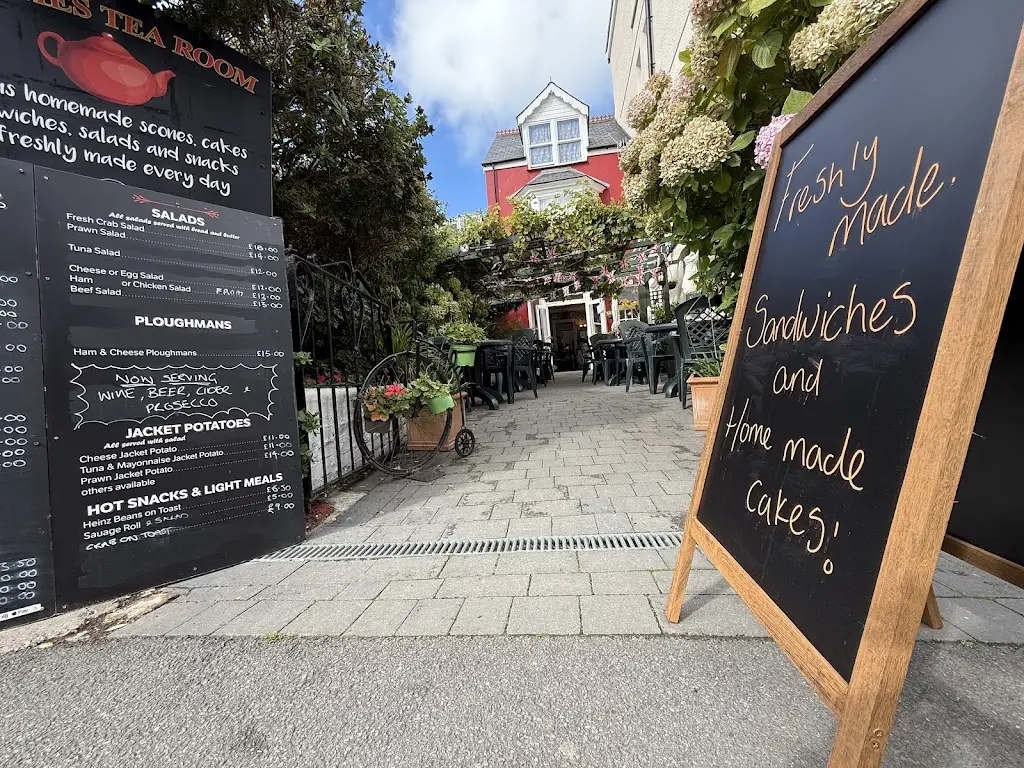 TEA ROOM
homemade scones, cakes
salads and snacks
freshly made every day
SALADS
All salads served with bread and butter
Fresh Crab Salad £18.00
Prawn Salad £14.00
Tuna Salad £12.00
Cheese or Egg Salad £12.00
Ham or Chicken Salad FROM £12.00
Beef Salad £13.00
PLOUGHMANS
Ham & Cheese Ploughmans £15.00
NOW SERVING
WINE, BEER, CIDER &
PROSECCO
JACKET POTATOES
All served with salad
Cheese Jacket Potato £11.00
Tuna & Mayonnaise Jacket Potato £11.00
Prawn Jacket Potato £14.00
others available
HOT SNACKS & LIGHT MEALS
Heinz Beans on Toast £6.50
Sauage Roll & SALAD £5.00
CRAB ON TOAST £9.00
Freshly
made.
Sandwiches
and
Home made
cakes!